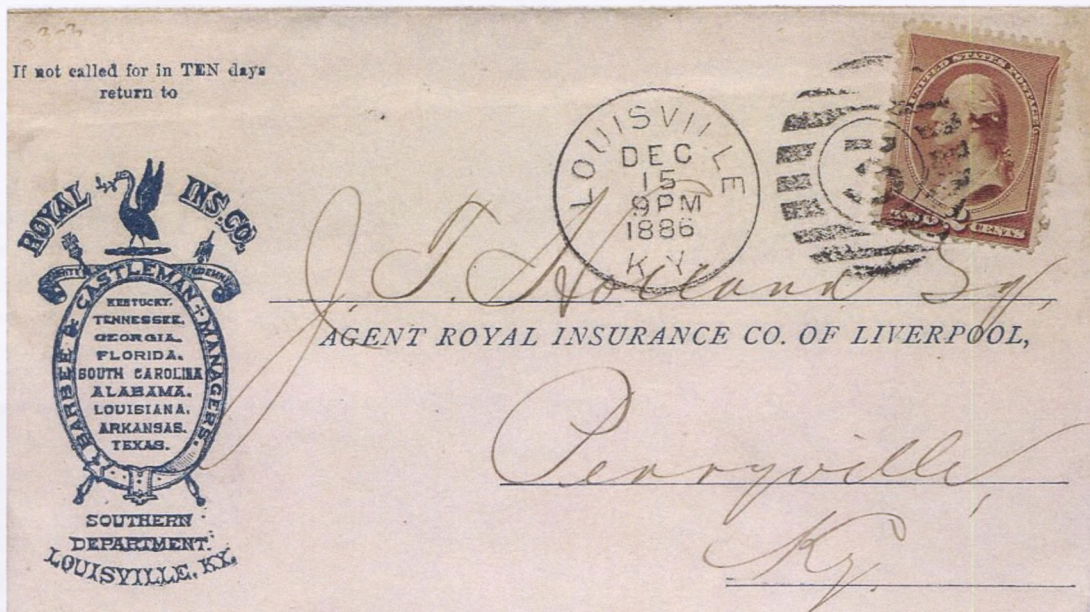 If not called for in TEN days
return to
ROYAL INS. CO.
BARBEE & CASTLEMAN + MANAGERS.
KENTUCKY.
TENNESSEE.
GEORGIA.
FLORIDA.
SOUTH CAROLINA
ALABAMA.
LOUISIANA.
ARKANSAS.
TEXAS.
SOUTHERN
DEPARTMENT.
LOUISVILLE, KY.
LOUISVILLE
DEC
15
9PM
1886
KY.
3
UNITED STATES POSTAGE
2
CENTS
J. T. Holland Esq,
AGENT ROYAL INSURANCE CO. OF LIVERPOOL,
Perryville,
Ky.